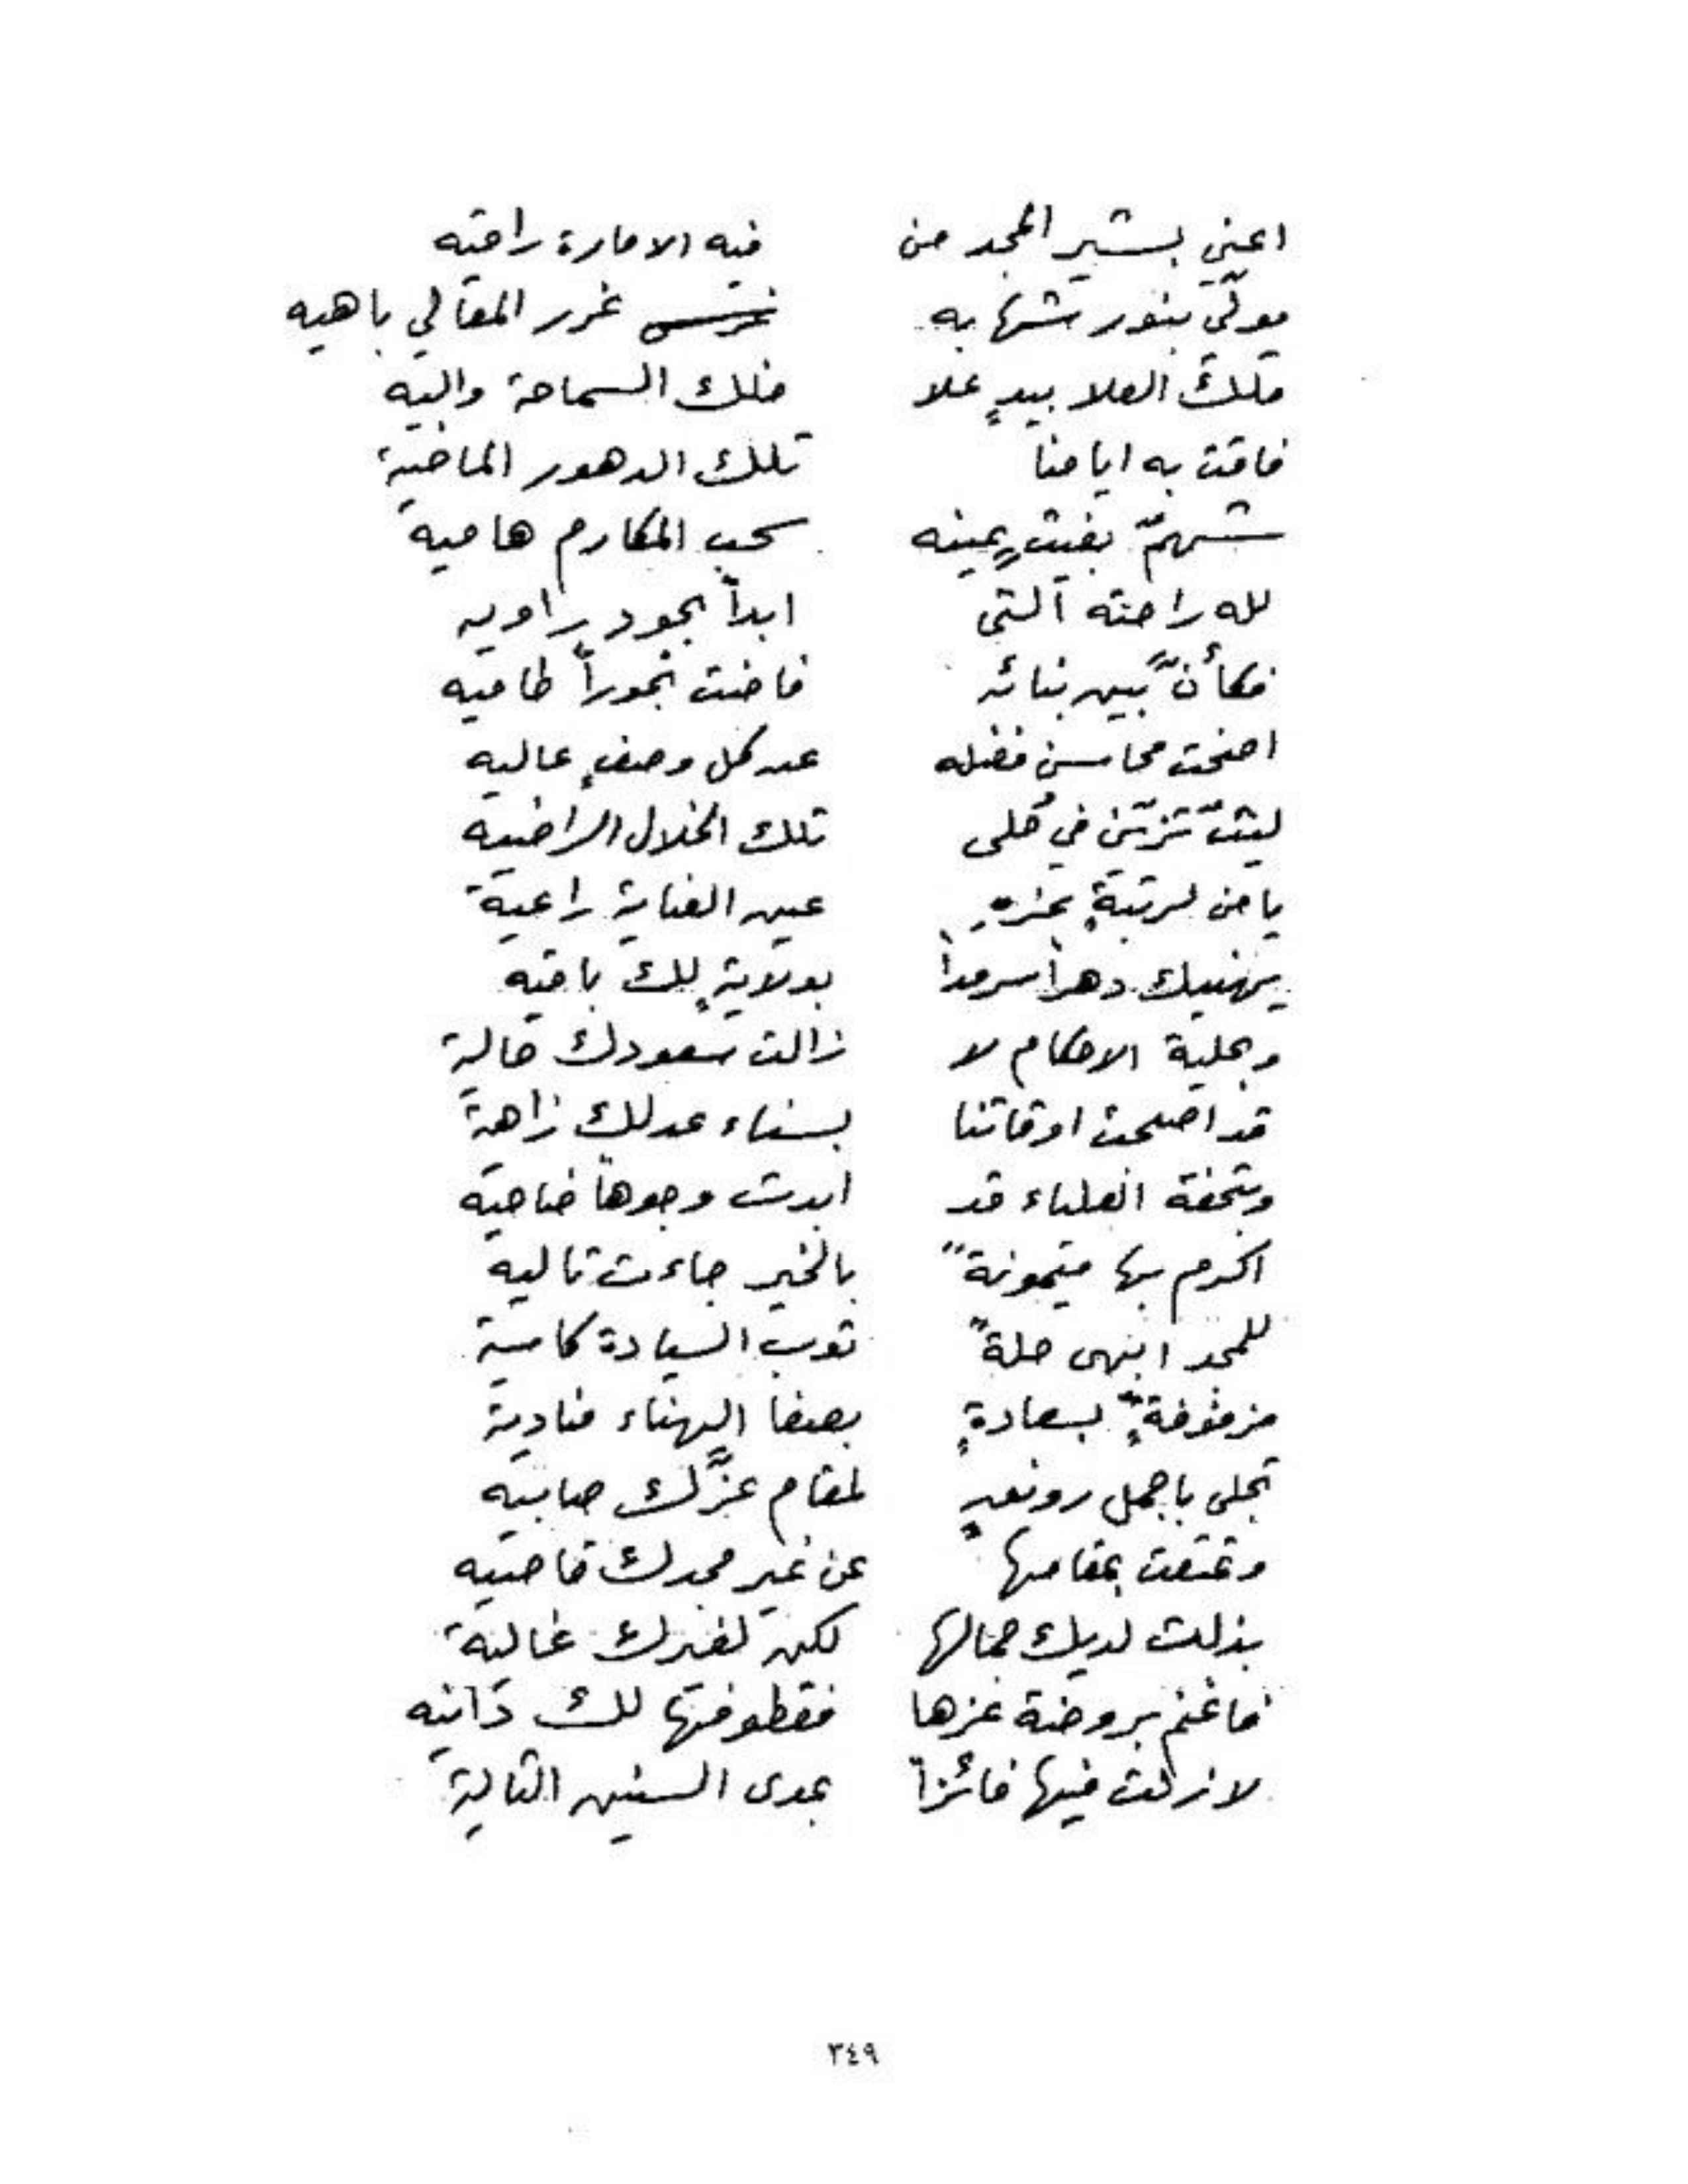 اعني بشير المجد من فيه الامارة راقيه
مولّى بنور شهابه غرر المعالي باهيه
ملك العلا بيدٍ علا فلك السماحة واليه
فاقت به ايامنا تلك الدهور الماضية
شهمٌ بغيث يمينه سحب المكارم هامية
لله راحته التي ابداً بجود راويه
فكأنّ بين بنانه فاضت بحوراً طاميه
اضحت محاسن فضله عن كل وصفٍ عاليه
ليثٌ تزيّن في حُلى تلك الخلال الراضيه
يا من لرتبةٍ عزه عين العناية راعية
يهنيك دهراً سرمداً بولايةٍ لك باقيه
وبحلية الاحكام لا زالت سعودك حالية
قد اصبحت اوقاتنا بسناء عدلك زاهية
وبتحفة العلياء قد ابدت وجوهاً ضاحيه
اكرم بها ميمونةً بالخير جاءت تاليه
للمجد ابهى حلةً ثوب السيادة كاسية
مزفوفةً بسعادةٍ بصفا الهناء منادية
تجلى باجمل رونقٍ لمقام عزّك صابيه
وتمنعت بمقامها عن غير مجدك قاصيه
بذلت لديك جمالها لكن لغيرك غالية
فاغنم بروضة عزها فقطوفها لك دانيه
لا زلت فيها فائزاً بمدى السنين التالية
٣٤٩